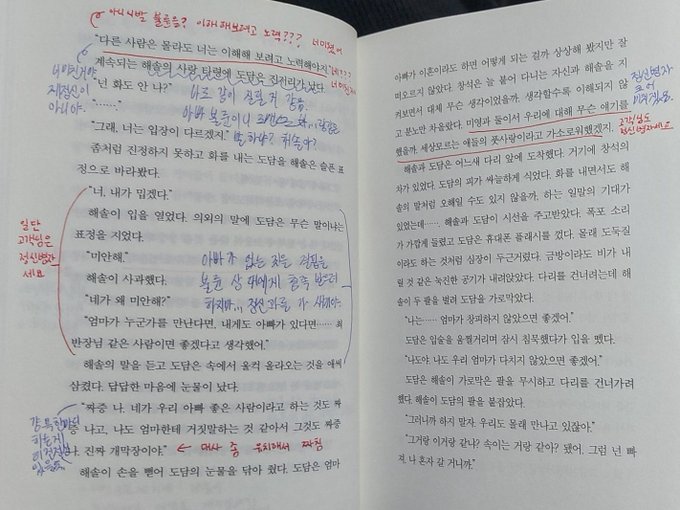 아니 시발 불륜을? 이해해보려고 노력???
"다른 사람은 몰라도 너는 이해해 보려고 노력해야지."
계속되는 해솔의 사랑 타령에 도담은 진저리가 났다.
"넌 화도 안 나?"
나도 같이 질릴 거 같음
"……."
"그래. 너는 입장이 다르겠지."
좀처럼 진정하지 못하고 화를 내는 도담을 해솔은 슬픈 표
정으로 바라봤다.
"너, 내가 밉겠다."
해솔이 입을 열었다. 의외의 말에 도담은 무슨 말이냐는
표정을 지었다.
"미안해."
해솔이 사과했다.
"네가 왜 미안해?"
"엄마가 누군가를 만난다면, 내게도 아빠가 있다면…… 최
반장님 같은 사람이면 좋겠다고 생각했어."
해솔의 말을 듣고 도담은 속에서 울컥 올라오는 것을 애써
삼켰다. 답답한 마음에 눈물이 났다.
"짜증 나. 네가 우리 아빠 좋은 사람이라고 하는 것도 짜
증 나고, 나도 엄마한테 거짓말하는 것 같아서 그것도 짜증
나. 진짜 개막장이야."
← 대사 좀 유치해서 짜침
해솔이 손을 뻗어 도담의 눈물을 닦아 줬다. 도담은 엄마
일단
고객님은
정신병자
세요
아빠가 없는 것은 결핍을
불륜 상대에게 충족 받으려
하지마… 정신과를 가 새끼야
아빠가 이혼이라도 하면 어떻게 되는 걸까 상상해 봤지만 잘
떠오르지 않았다. 창석은 늘 붙어 다니는 자신과 해솔을 지
켜보면서 대체 무슨 생각이었을까. 생각할수록 이해되지 않
고 분노만 차올랐다. 미영과 둘이서 우리에 대해 무슨 얘기를
했을까. 세상모르는 애들의 풋사랑이라고 가소로워했겠지.
고객님도
정신병자세요
해솔과 도담은 어느새 다리 앞에 도착했다. 거기에 창석의
차가 있었다. 도담의 피가 싸늘하게 식었다. 화를 내면서도 해
솔의 말처럼 오해일 수도 있지 않을까, 하는 일말의 기대가
있었는데……. 해솔과 도담이 시선을 주고받았다. 폭포 소리
가 가깝게 들렸고 도담은 휴대폰 플래시를 껐다. 몰래 도둑질
이라도 하는 것처럼 심장이 두근거렸다. 금방이라도 비가 내
릴 것 같은 눅진한 공기가 내려앉았다. 다리를 건너려는데 해
솔이 두 팔을 벌려 도담을 가로막았다.
"나는…… 엄마가 창피하지 않았으면 좋겠어."
도담은 입술을 움찔거리며 잠시 침묵했다가 입을 뗐다.
"나도야. 나도 우리 엄마가 다치지 않았으면 좋겠어."
도담은 해솔이 가로막은 팔을 무시하고 다리를 건너가려
했다. 해솔이 도담의 팔을 붙잡았다.
"그러니까 하지 말자. 우리도 몰래 만나고 있잖아."
"그거랑 이거랑 같냐? 속이는 거랑 같아? 됐어. 그럼 넌 빠
져. 나 혼자 갈 거니까."